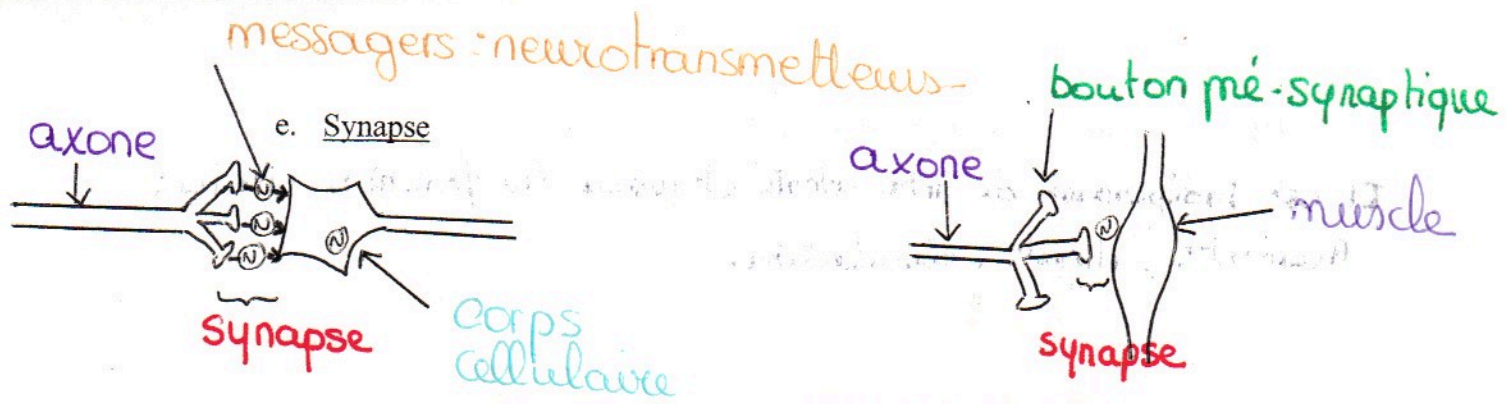 messagers : neurotransmetteurs
e. Synapse
axone
N
N
N
N
synapse
corps
cellulaire
bouton pré-synaptique
axone
N
muscle
synapse